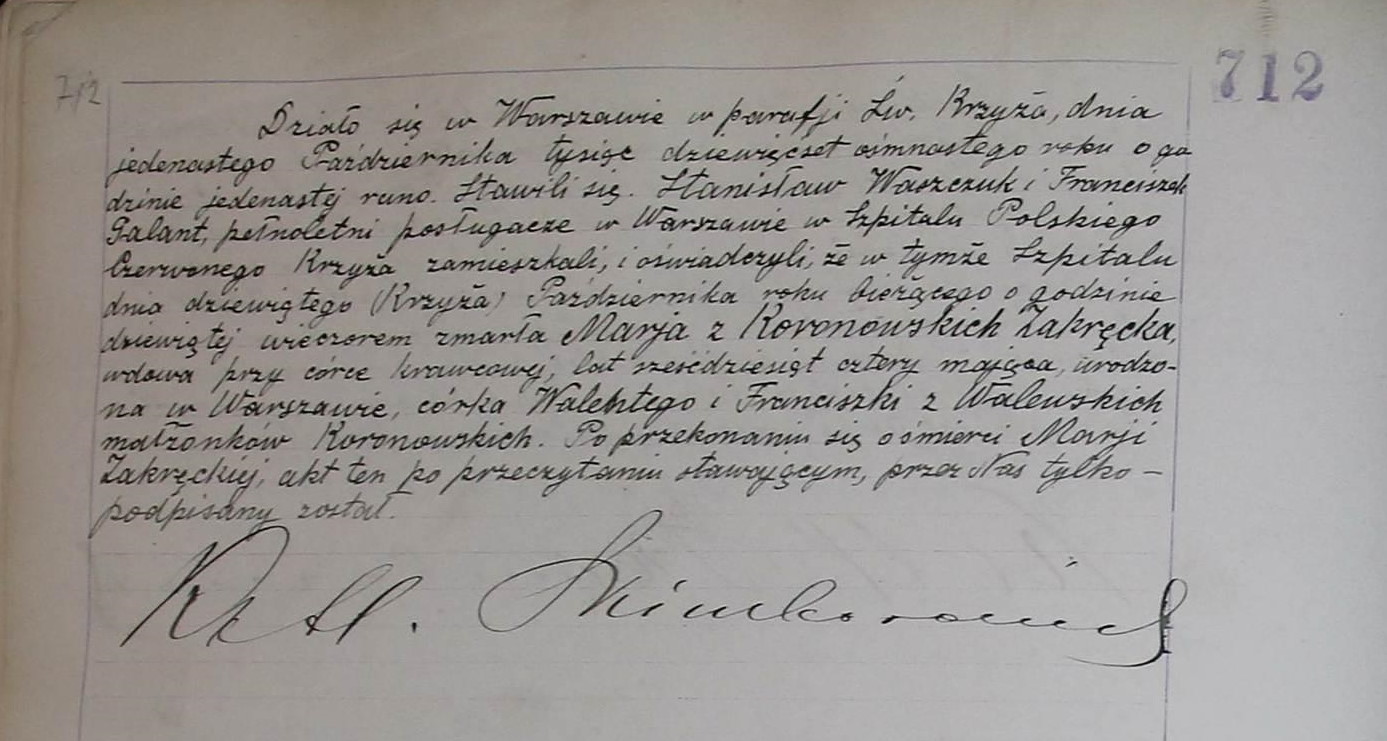 712
712
Działo się w Warszawie w parafji Św. Krzyża, dnia
jedenastego Października tysiąc dziewięćset ośmnastego roku o go
dzinie jedenastej rano. Stawili się. Stanisław Waszczuk i Franciszek
Galant, pełnoletni posługacze w Warszawie w Szpitalu Polskiego
Czerwonego Krzyża zamieszkali, i oświadczyli, że w tymże Szpitalu
dnia dziewiątego (Krzyża) Października roku bieżącego o godzinie
dziewiątej wieczorem zmarła Marja z Koronowskich Zakręcka,
wdowa przy córce krawcowej, lat sześćdziesiąt cztery mająca, urodzo-
na w Warszawie, córka Walentego i Franciszki z Walewskich
małżonków Koronowskich. Po przekonaniu się o śmierci Marji
Zakręckiej, akt ten po przeczytaniu stawającym, przez Nas tylko –
podpisany został.